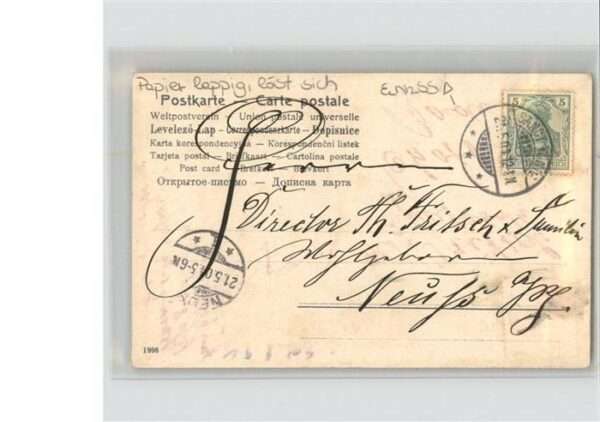 Papier lappig, löst sich
Postkarte — Carte postale
Weltpostverein — Union postale universelle
Levelező-Lap — Correspondenzkarte — Dopisnice
Karta korespondencyjna — Korespondenční lístek
Tarjeta postal — Brefkaart — Cartolina postale
Post card — Brefkort — Brevkort
Открытое письмо — Дописна карта
5 5
Herrn
Director Th. Fritsch & Familie
Wohlgeboren
Neuß
21.5.0 5-6N.
1998